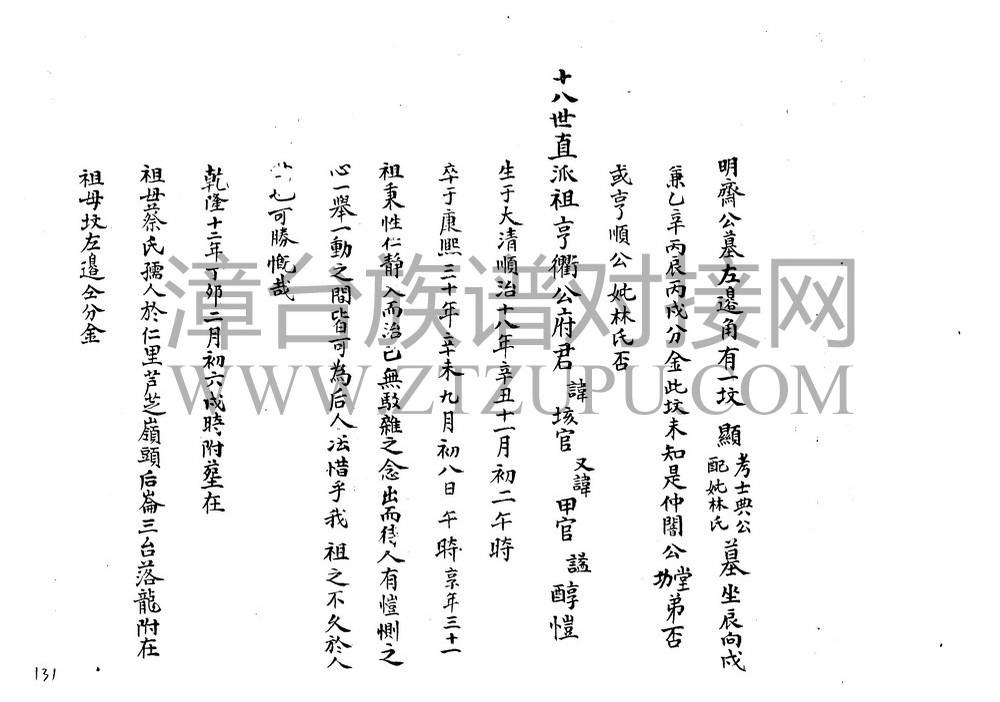 明齋公墓左邉角有一坟 顯 考士典公 配妣林氏 墓坐辰向戍
兼乙辛丙辰丙戍分金此坟未知是仲闇公 堂弟否
或亨順公妣林氏否
十八世直派祖亨衢公府君 諱垓官 又諱甲官 諡醇愷
生于大清順治十八年辛丑十一月初二午時
卒于康熙三十年辛未九月初八日午時享年三十一
祖秉性仁靜入而治已無駁雜之念出而待人有愷惻之
心一舉一動之間皆可為后人法惜乎我 祖之不久於人
也可勝慨哉
乾隆十二年丁卯二月初六戍時附塟在
祖母蔡氏孺人於仁里芋芝嶺頭后崙三台落龍附在
祖母坟左邉仝分金
131
漳台族谱对接网
WWW.ZTZUPU.COM